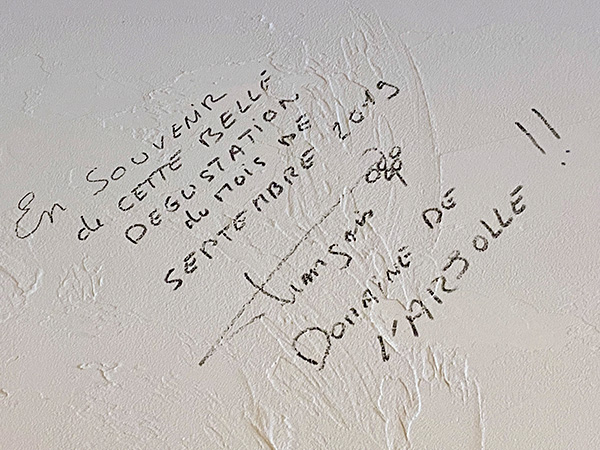 En SOUVENIR
de CETTE BELLE
DEGUSTATION
du MOIS DE
SEPTEMBRE 2019
DOMAINE DE
L'ARJOLLE !!